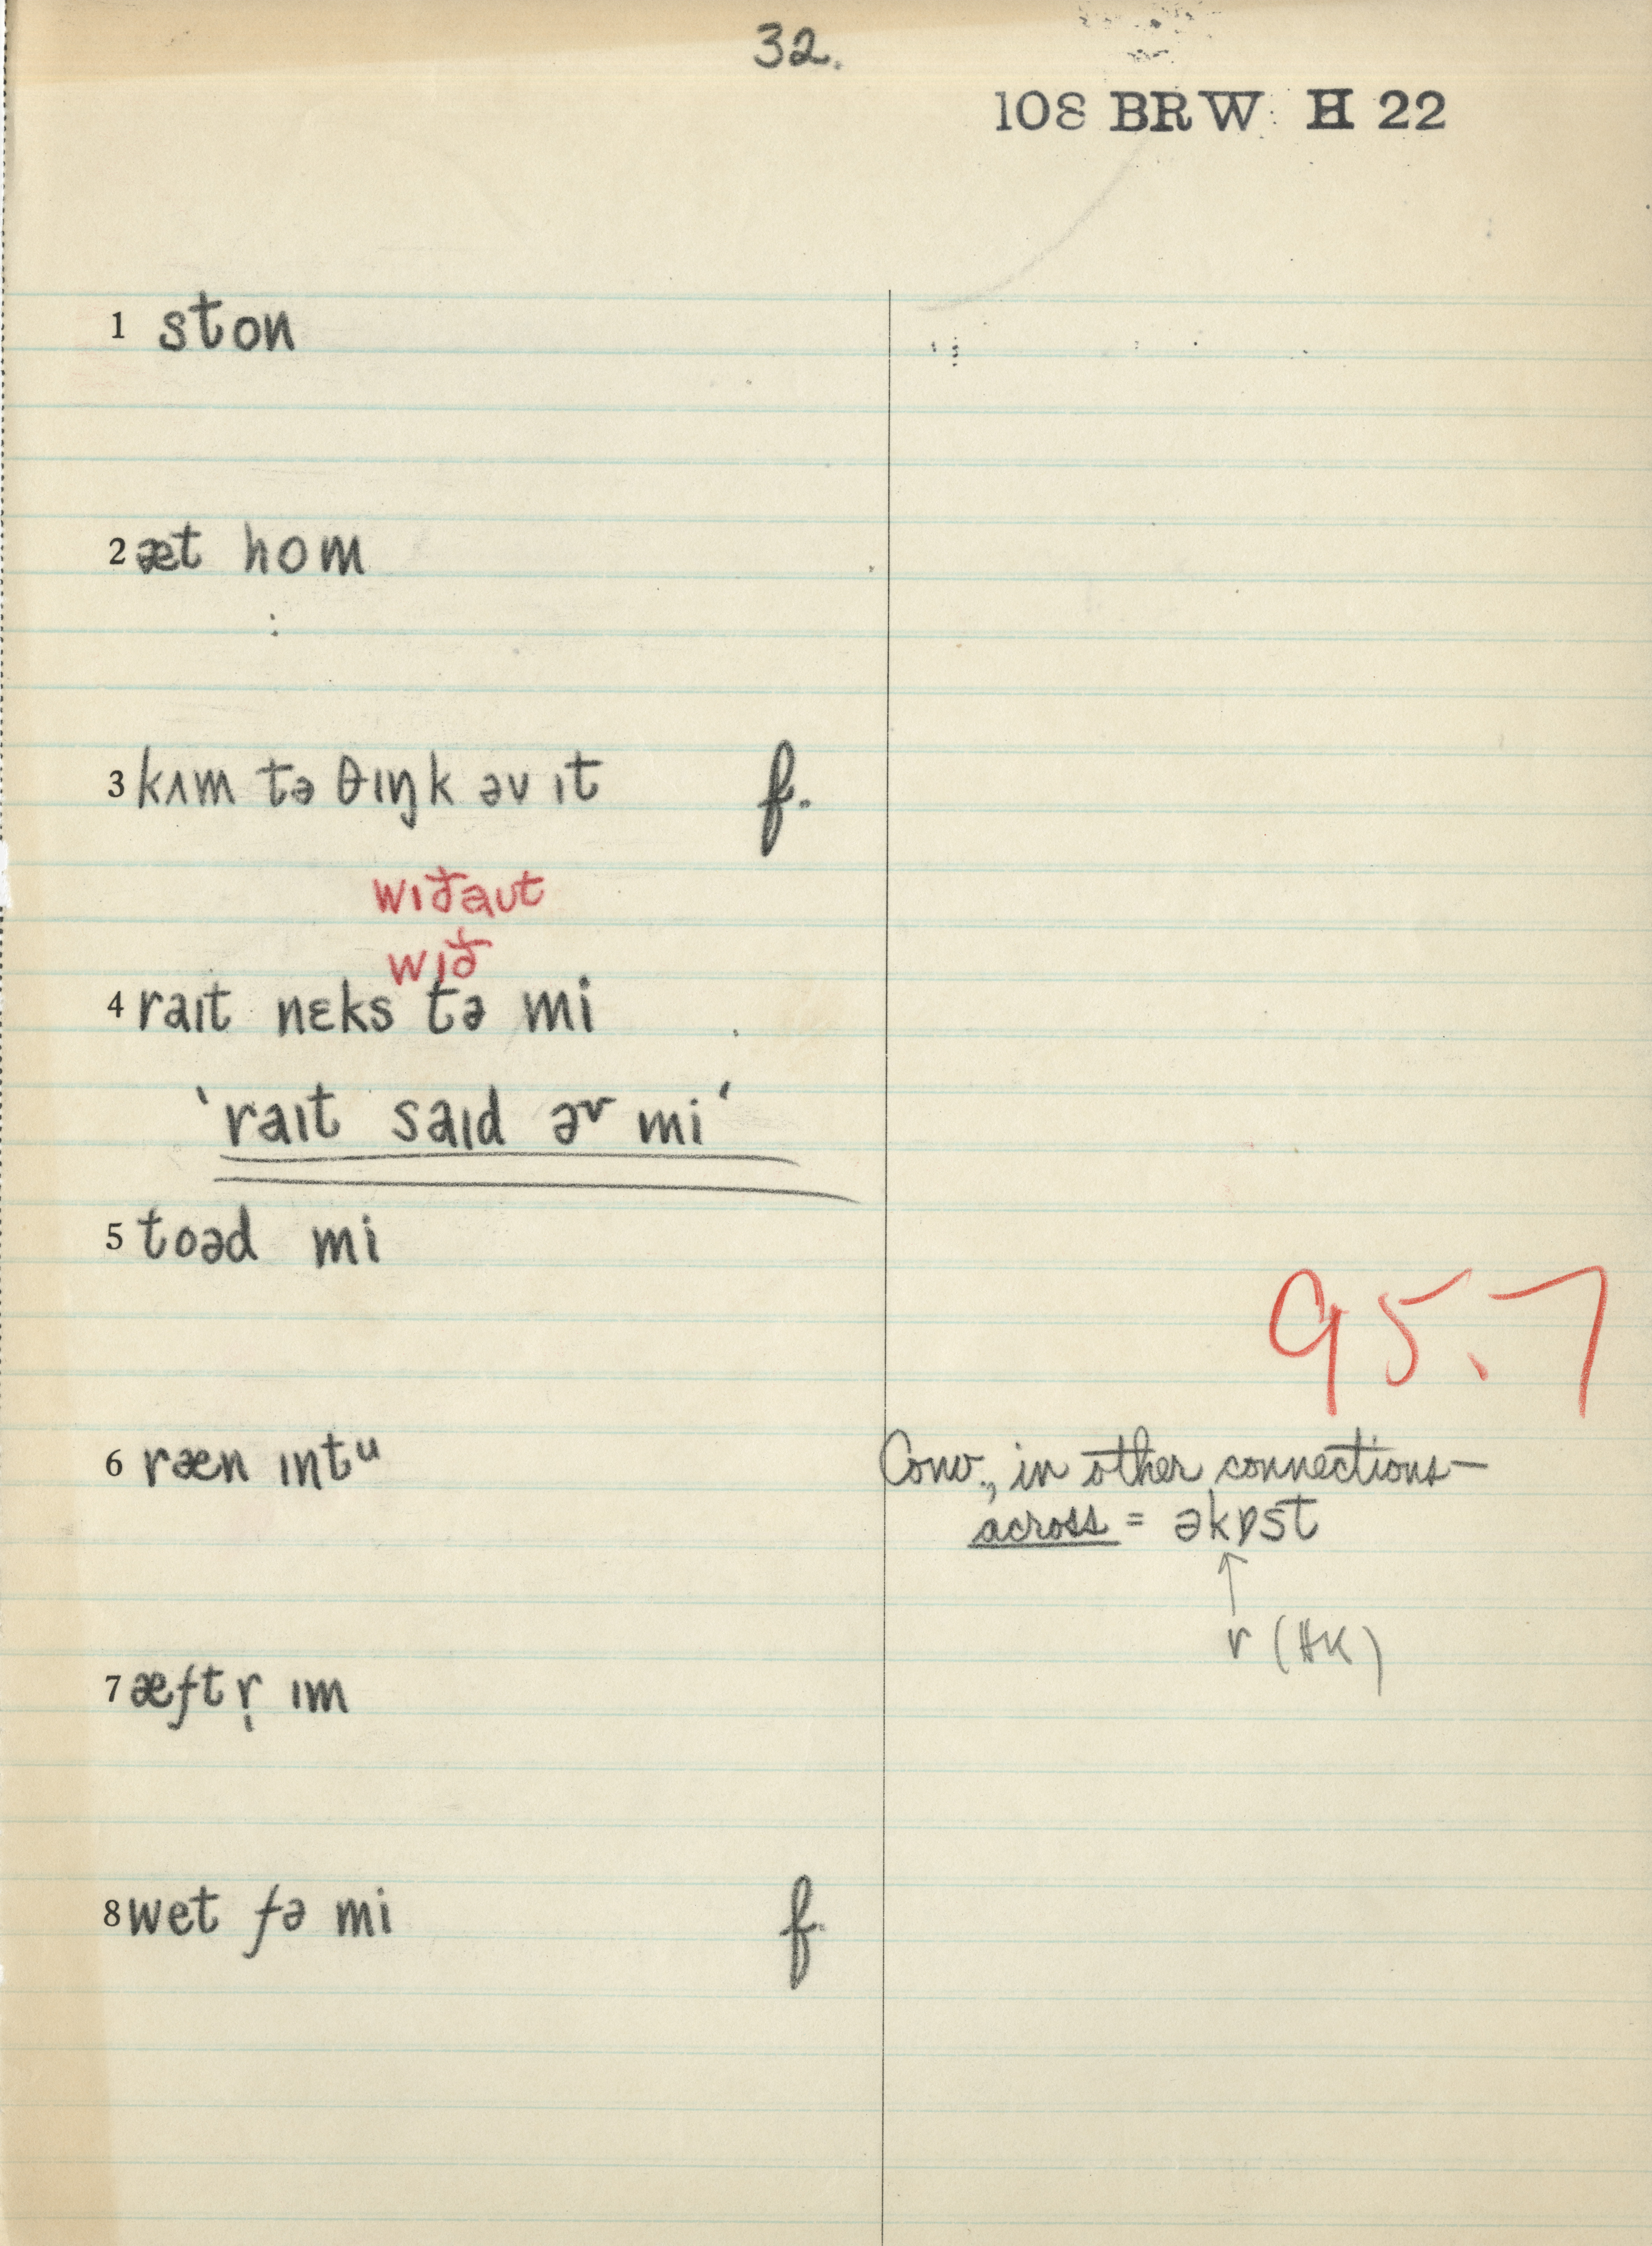 32.
108 BRW H 22
1 ston
2 æt hom
3 kʌm tə θɪŋk əv ɪt f.
wɪðaʊt
wɪð
4 raɪt nɛks tə mi
'raɪt saɪd əv mi'
5 toəd mi
95.7
6 ræn ɪntᵘ
Conv., in other connections—
across = əkɒst
r (HK)
7 æftr̩ ɪm
8 wet fə mi f.